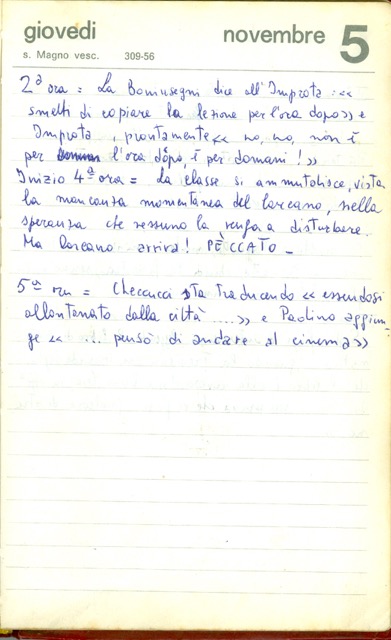 giovedi novembre 5
s. Magno vesc. 309-56
2ª ora = La Bomusegni dice all'Improta: «
smetti di copiare la lezione per l'ora dopo» e
Improta, prontamente « no, no, non è
per l'ora dopo, è per domani!»
Inizio 4ª ora = La classe si ammutolisce, vista
la mancanza momentanea del Lorcano, nella
speranza che nessuno la venga a disturbare.
Ma Lorcano arriva! PECCATO -
5ª ora = Checcucci sta traducendo « essendosi
allontanato dalla città ....» e Paolino aggiun-
ge « ... pensò di andare al cinema»